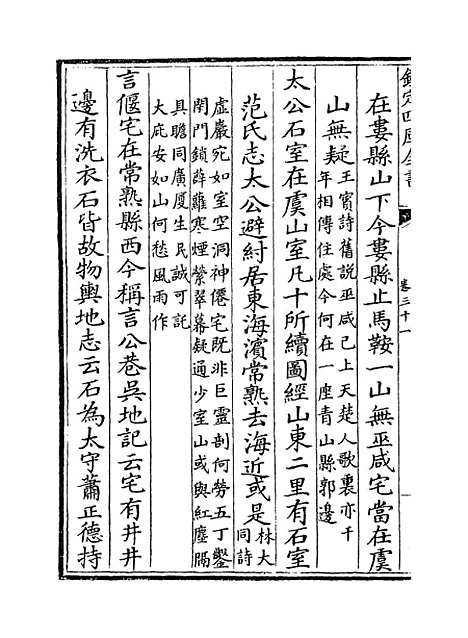 欽定四庫全書
卷三十一
在婁縣山下今婁縣止馬鞍一山無巫咸宅當在虞
山無疑王賓詩舊說巫咸已上天楚人歌裏亦千
年相傳住處今何在一座青山縣郭邊
太公石室在虞山室凡十所續圖經山東二里有石室
范氏志太公避紂居東海濱常熟去海近或是林大
同詩
虛巖宛如室空洞神僊宅既非巨靈剖何勞五丁鑿
閉門鎖薜蘿寒煙縈翠幕疑通少室山或與紅塵隔
具瞻同廣厦生民誠可託
大庇安如山何愁風雨作
言偃宅在常熟縣西今稱言公巷吳地記云宅有井井
邊有洗衣石皆故物輿地志云石為太守蕭正德持